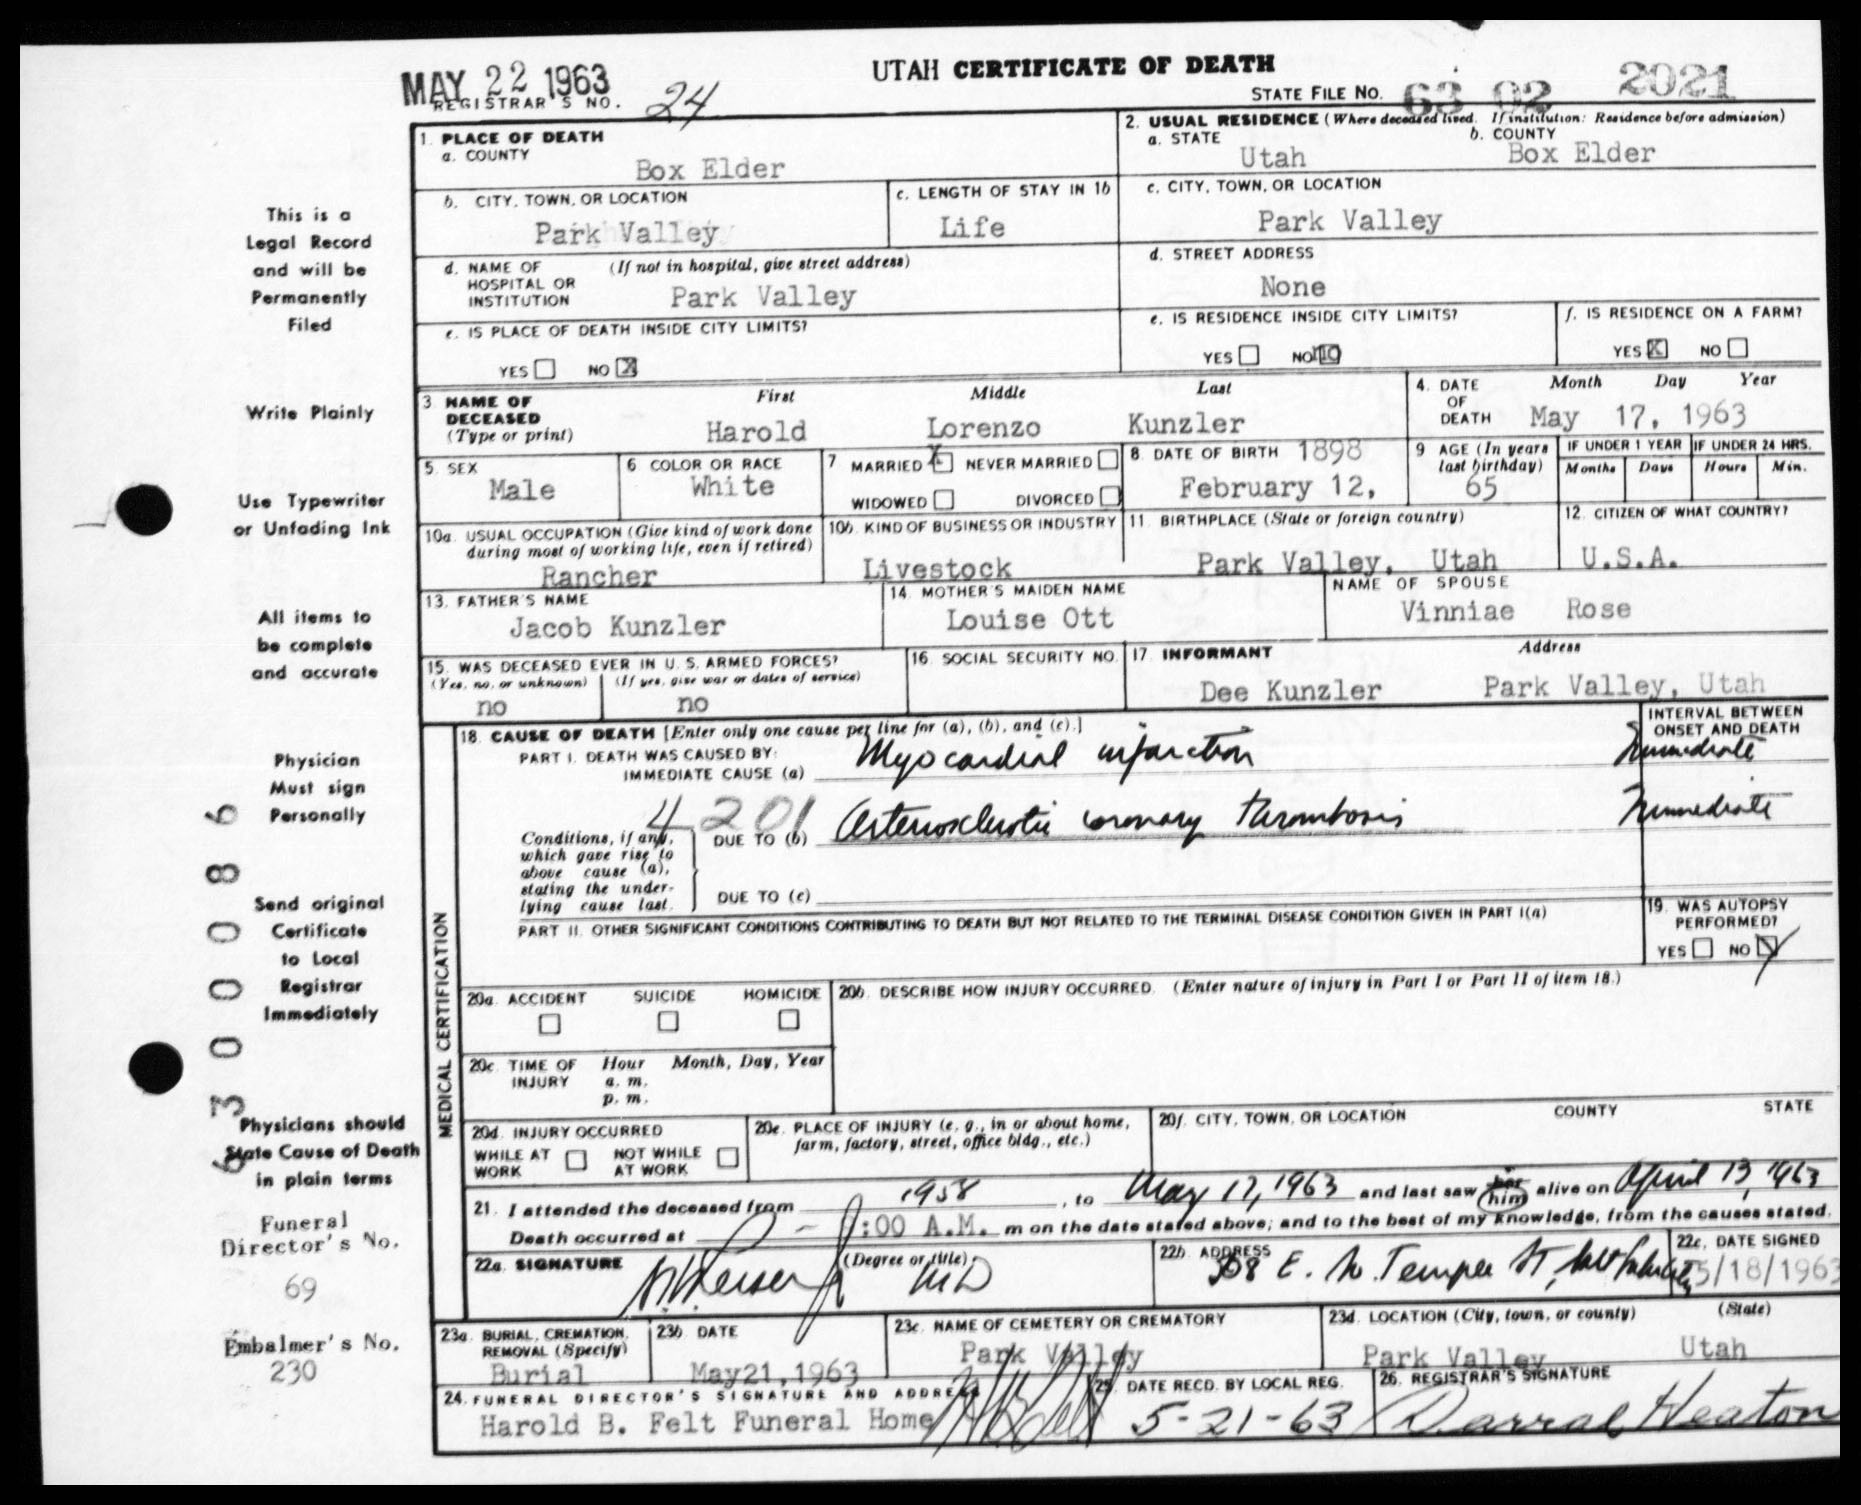 MAY 22 1963
UTAH CERTIFICATE OF DEATH
REGISTRAR'S NO. 24
STATE FILE NO. 63 02 2021
1. PLACE OF DEATH
a. COUNTY
Box Elder
2. USUAL RESIDENCE (Where deceased lived. If institution: Residence before admission)
a. STATE
Utah
b. COUNTY
Box Elder
b. CITY, TOWN, OR LOCATION
Park Valley
c. LENGTH OF STAY IN 1b
Life
c. CITY, TOWN, OR LOCATION
Park Valley
d. NAME OF HOSPITAL OR INSTITUTION
(If not in hospital, give street address)
Park Valley
d. STREET ADDRESS
None
e. IS PLACE OF DEATH INSIDE CITY LIMITS?
YES NO X
e. IS RESIDENCE INSIDE CITY LIMITS?
YES NO no
f. IS RESIDENCE ON A FARM?
YES X NO
3. NAME OF DECEASED
(Type or print)
First Middle Last
Harold Lorenzo Kunzler
4. DATE OF DEATH
Month Day Year
May 17, 1963
5. SEX
Male
6 COLOR OR RACE
White
7 MARRIED X NEVER MARRIED
WIDOWED DIVORCED
8. DATE OF BIRTH 1898
February 12,
9 AGE (In years last birthday)
65
IF UNDER 1 YEAR
Months Days
IF UNDER 24 HRS.
Hours Min.
10a. USUAL OCCUPATION (Give kind of work done during most of working life, even if retired)
Rancher
10b. KIND OF BUSINESS OR INDUSTRY
Livestock
11. BIRTHPLACE (State or foreign country)
Park Valley, Utah
12. CITIZEN OF WHAT COUNTRY?
U.S.A.
13. FATHER'S NAME
Jacob Kunzler
14. MOTHER'S MAIDEN NAME
Louise Ott
NAME OF SPOUSE
Vinniae Rose
15. WAS DECEASED EVER IN U. S. ARMED FORCES?
(Yes, no, or unknown) (If yes, give war or dates of service)
no no
16. SOCIAL SECURITY NO.
17. INFORMANT Address
Dee Kunzler Park Valley, Utah
18. CAUSE OF DEATH [Enter only one cause per line for (a), (b), and (c).]
INTERVAL BETWEEN ONSET AND DEATH
PART I. DEATH WAS CAUSED BY:
IMMEDIATE CAUSE (a) Myocardial infarction Immediate
4201
Conditions, if any, which gave rise to above cause (a), stating the underlying cause last.
DUE TO (b) Arteriosclerotic coronary thrombosis Immediate
DUE TO (c)
PART II. OTHER SIGNIFICANT CONDITIONS CONTRIBUTING TO DEATH BUT NOT RELATED TO THE TERMINAL DISEASE CONDITION GIVEN IN PART I(a)
19. WAS AUTOPSY PERFORMED?
YES NO
MEDICAL CERTIFICATION
20a. ACCIDENT SUICIDE HOMICIDE
20b. DESCRIBE HOW INJURY OCCURRED. (Enter nature of injury in Part I or Part II of item 18.)
20c. TIME OF INJURY
Hour Month, Day, Year
a. m.
p. m.
20d. INJURY OCCURRED
WHILE AT WORK NOT WHILE AT WORK
20e. PLACE OF INJURY (e. g., in or about home, farm, factory, street, office bldg., etc.)
20f. CITY, TOWN, OR LOCATION COUNTY STATE
21. I attended the deceased from 1958, to May 17, 1963 and last saw her him alive on April 13, 1963
Death occurred at :00 A.M. m on the date stated above; and to the best of my knowledge, from the causes stated.
22a. SIGNATURE (Degree or title)
MD
22b. ADDRESS
508 E. So. Temple St, Salt Lake City
22c. DATE SIGNED
5/18/1963
23a. BURIAL, CREMATION, REMOVAL (Specify)
Burial
23b. DATE
May21,1963
23c. NAME OF CEMETERY OR CREMATORY
Park Valley
23d. LOCATION (City, town, or county) (State)
Park Valley Utah
24. FUNERAL DIRECTOR'S SIGNATURE AND ADDRESS
Harold B. Felt Funeral Home
25. DATE RECD. BY LOCAL REG.
5-21-63
26. REGISTRAR'S SIGNATURE
Darral Heaton
This is a
Legal Record
and will be
Permanently
Filed
Write Plainly
Use Typewriter
or Unfading Ink
All items to
be complete
and accurate
Physician
Must sign
Personally
Send original
Certificate
to Local
Registrar
Immediately
Physicians should
State Cause of Death
in plain terms
Funeral
Director's No.
69
Embalmer's No.
230
63000086